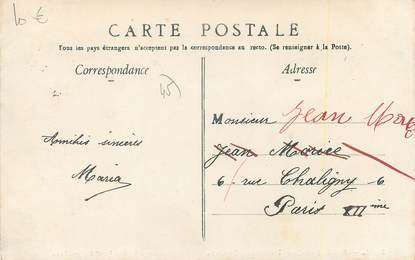 10 €
CARTE POSTALE
Tous les pays étrangers n'acceptent pas la correspondance au recto. (Se renseigner à la Poste).
Correspondance
Adresse
45
Amitiés sincères
Maria
Monsieur Jean
Jean Morice
6 rue Chaligny 6
Paris XIIème